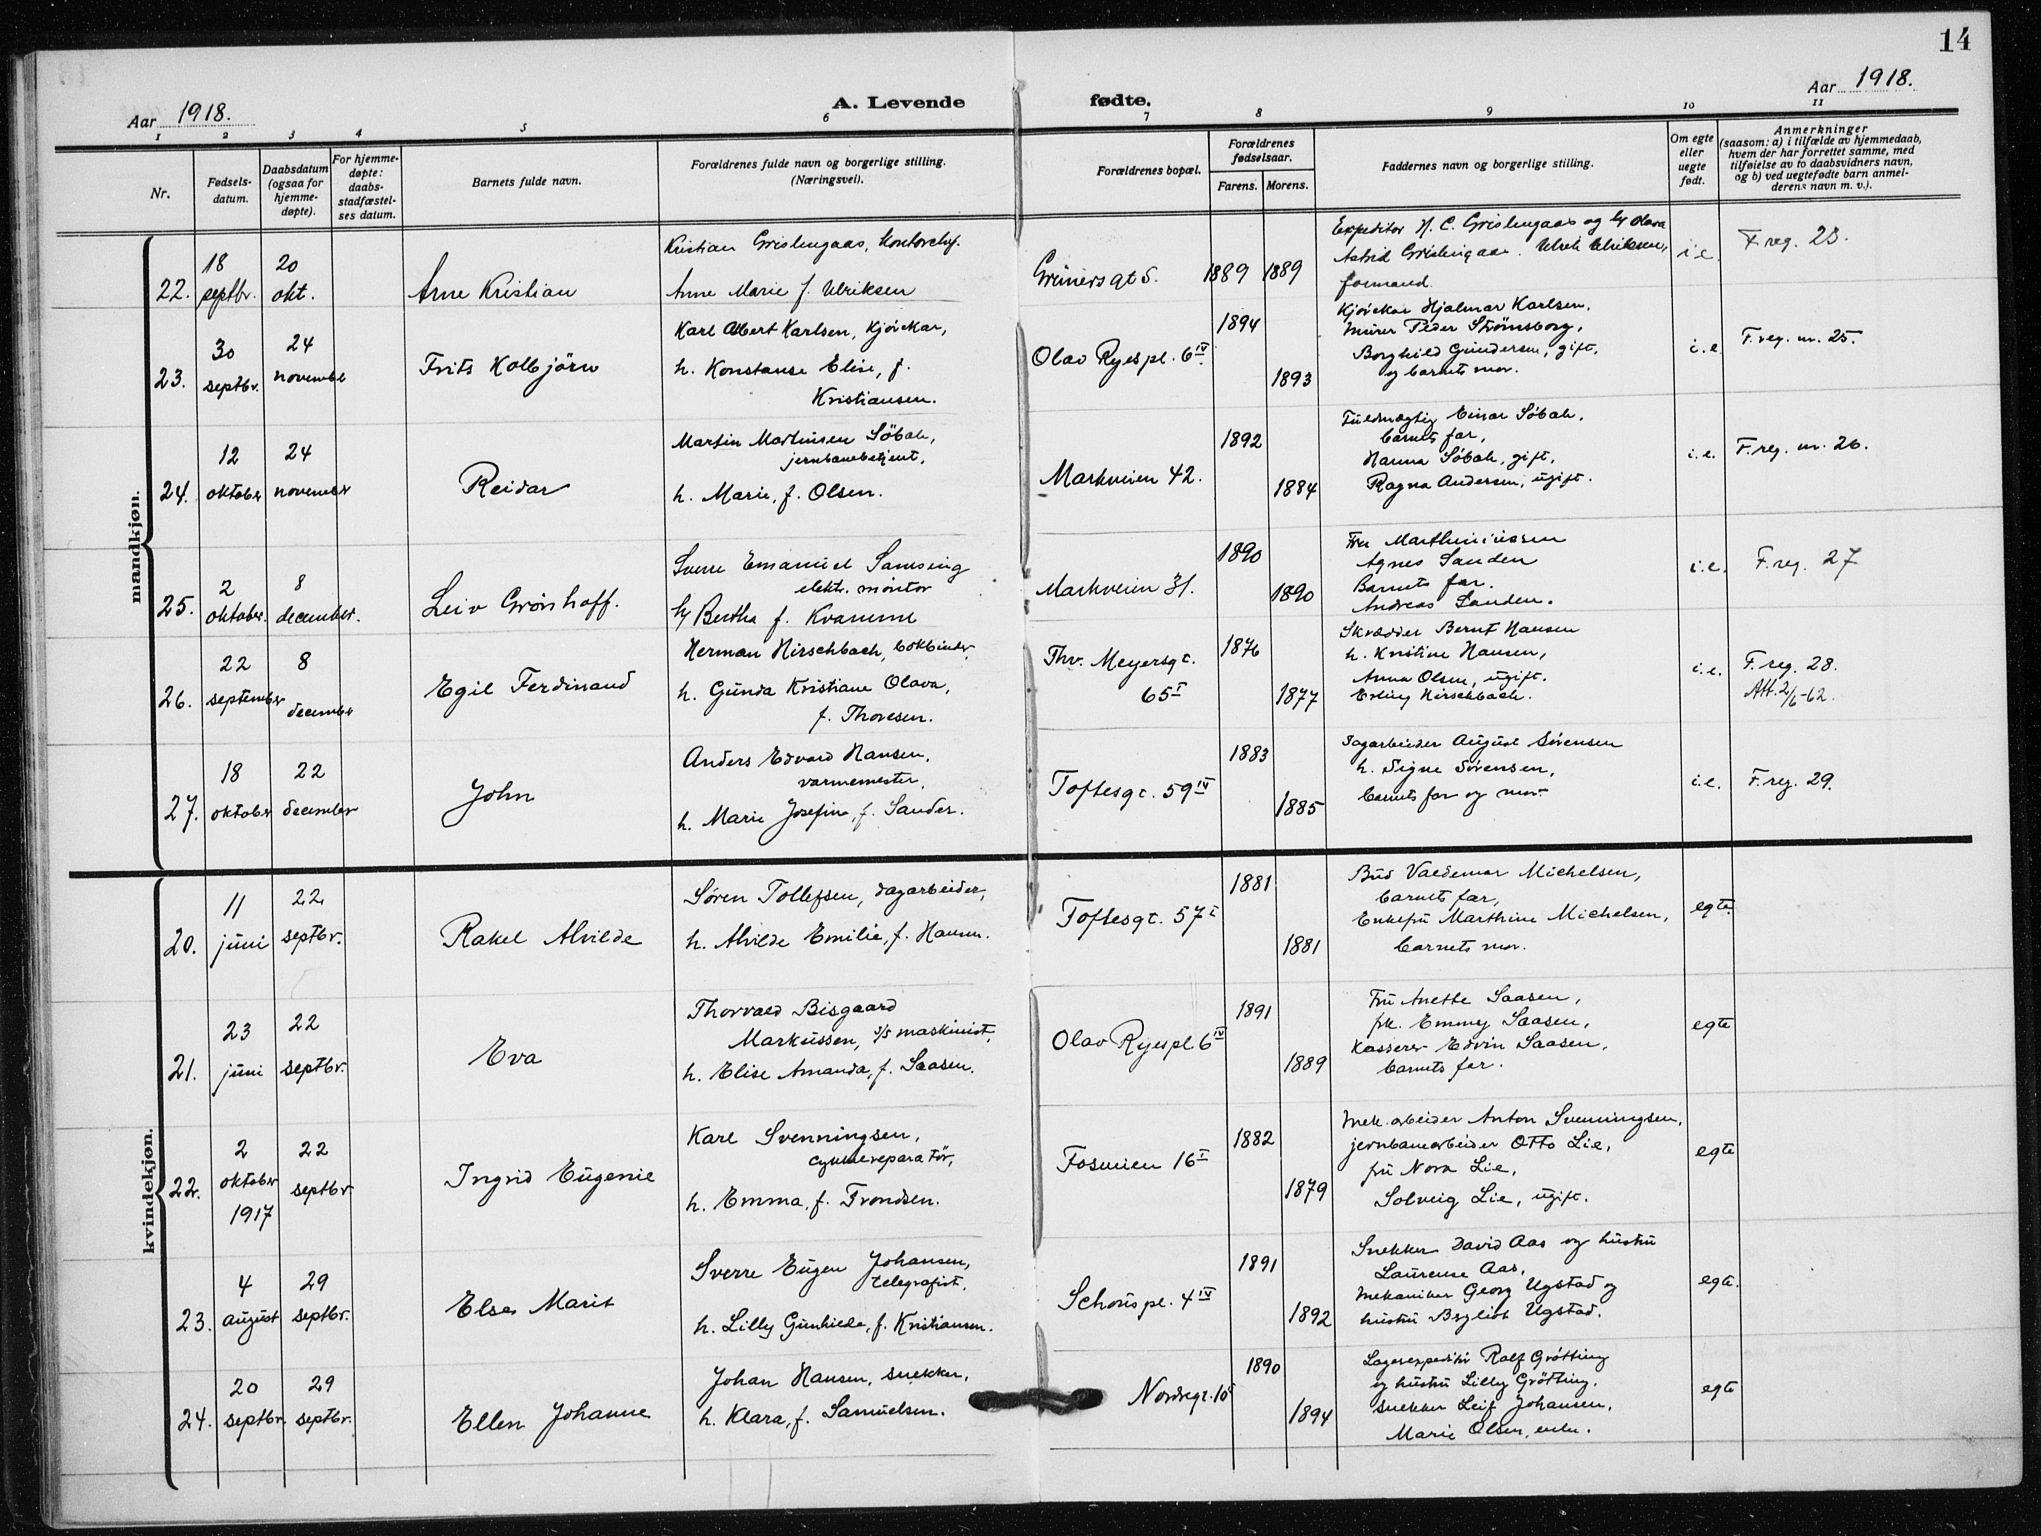 14
Aar 1918.
A. Levende fødte.
Aar 1918.
1 2 3 4 5 6 7 8 9 10 11
Nr.
Fødsels-
datum.
Daabsdatum
(ogsaa for
hjemme-
døpte).
For hjemme-
døpte:
daabs-
stadfæstel-
ses datum.
Barnets fulde navn.
Forældrenes fulde navn og borgerlige stilling.
(Næringsvei).
Forældrenes bopæl.
Forældrenes
fødselsaar.
Farens. Morens.
Faddernes navn og borgerlige stilling.
Om egte
eller
uegte
født.
Anmerkninger
(saasom: a) i tilfælde av hjemmedaab,
hvem der har forrettet samme, med
tilføielse av to daabsvidners navn,
og b) ved uegtefødte barn anmel-
derens navn m. v.).
mandkjøn.
22.
18
septbr.
20
okt.
Arne Kristian
Kristian Grislingaas,
Anne Marie f. Ulriksen
Grüners gt 5.
1889 1889
Expeditør H. C. Grislingaas og Olava
Astrid Grislingaas. Ulrik Ulriksen,
formand.
i.e.
F reg. 23.
23.
30
septbr.
24
november
Frits Kolbjörn
Karl Albert Karlsen, kjörekar,
h. Konstanse Elise, f.
Kristiansen.
Olav Ryes pl. 6 IV
1894
1893
Kjörekar Hjalmar Karlsen.
murer Peder Strömsborg,
Borghild Gundersen, gift,
og barnets mor.
i.e.
F. reg. nr. 25.
24.
12
oktober
24
november
Reidar
Martin Martinsen Söbak,
jernbanebetjent,
h. Marie, f. Olsen.
Markveien 42.
1892
1884
Fuldmægtig Einar Söbak.
barnets far,
Hanna Söbak, gift,
Ragna Andersen, ugift.
i.e.
F. reg. nr. 26.
25.
2
oktober.
8
december.
Leiv Grönhoff.
Sverre Emanuel Samsing
elektr. montör
Bertha f. Kvamme
Markveien 31.
1890
1890
Fru Marthiniussen
Agnes Sanden
Barnets far.
Andreas Sanden.
i.e.
F. reg. 27
26.
22
september
8
december
Egil Ferdinand
Herman Hirschbach, bokbinder,
h. Gunda Kristiane Olava,
f. Thoresen.
Thv. Meyersgt.
65 I
1876
1877
Skrædder Bernt Hansen
h. Kristine Hansen,
Anna Olsen, ugift.
Erling Hirschbach.
i.e.
F. reg. 28.
Att. 2/6-62.
27.
18
oktober
22
december
John
Anders Edvard Hansen,
varmemester,
h. Marie Josefine, f. Sander.
Toftesgt. 59 IV
1883
1885
Dagarbeider August Sörensen
h. Signe Sörensen,
barnets far og mor.
i.e.
F. reg. 29.
kvindekjøn.
20.
11
juni
22
septbr.
Rakel Alvilde
Sören Tollefsen, dagarbeider,
h. Alvilde Emilie, f. Hansen.
Toftesgt. 57 I
1881
1881
Bud Valdemar Michelsen,
barnets far,
Enkefru Marthine Michelsen,
barnets mor.
egte.
21.
23
juni
22
septbr.
Eva
Thorvald Bisgaard
Markussen, maskinist,
h. Elise Amanda, f. Saasen.
Olav Ryespl. 6 IV
1891
1889
Fru Anette Saasen,
frk. Emmy Saasen,
Kasserer Edvin Saasen,
barnets far.
egte
22.
2
oktober
1917
22
septbr.
Ingrid Eugenie
Karl Svenningsen,
cykkelreparatör,
h. Emma, f. Trondsen.
Fosveien 16 I
1882
1879
mek. arbeider Anton Svenningsen,
jernbanearbeider Otto Lie,
fru Nora Lie,
Solveig Lie, ugift.
egte
23.
4
august
29
septbr.
Else Marit
Sverre Eugen Johansen,
telegrafist,
h. Lilly Gunhilde, f. Kristiansen.
Schouspl. 4 IV
1891
1892
Snekker David Aas og hustru
Laurense Aas,
mekaniker Georg Ugstad og
hustru Bergliot Ugstad.
egte.
24.
20
septbr.
29
septbr.
Ellen Johanne
Johan Hansen, snekker,
h. Klara, f. Samuelsen.
Nordregt. 10
1890
1894
Lagerexpeditör Rolf Grötting
og hustru Lilly Grötting.
snekker Leif Johansen,
Marie Olsen, enke.
egte